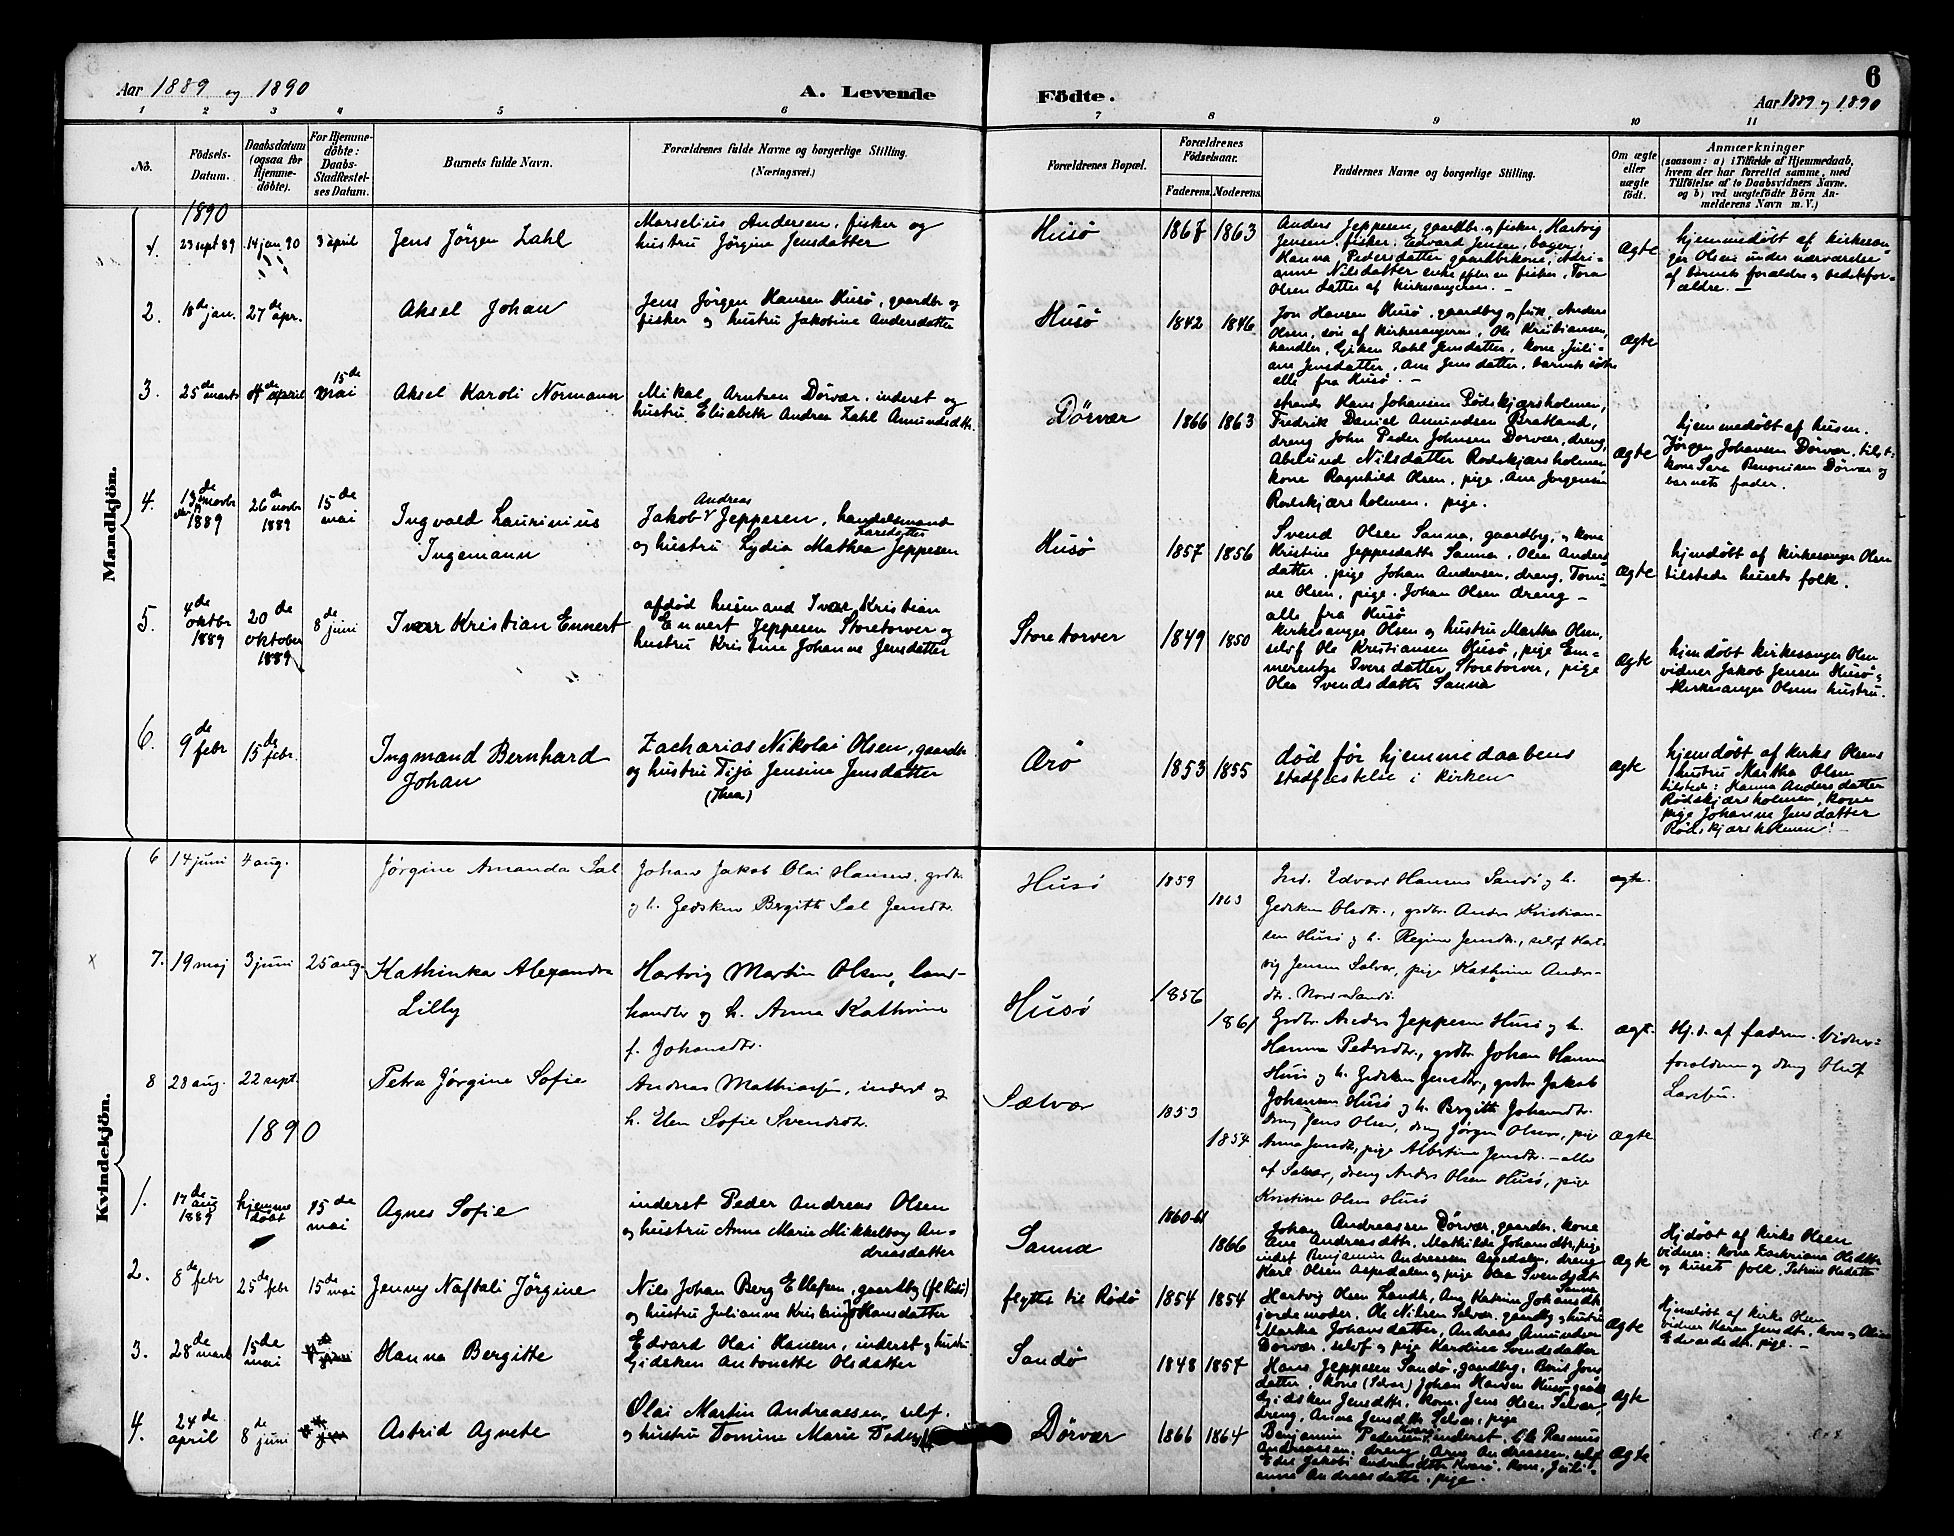 Aar 1889 og 1890
A. Levende Födte.
6
Aar 1889 og 1890
1 2 3 4 5 6 7 8 9 10 11
No.
Födsels-Datum.
Daabsdatum (ogsaa for Hjemme-döbte).
For Hjemme-döbte: Daabs-Stadfæstel-ses Datum.
Barnets fulde Navn.
Forældrenes fulde Navne og borgerlige Stilling. (Næringsvei.)
Forældrenes Bopæl.
Forældrenes Födselsaar.
Faderens. Moderens.
Faddernes Navne og borgerlige Stilling.
Om ægte eller uægte födt.
Anmærkninger
(saasom: a) i Tilfælde af Hjemmedaab,
hvem der har forrettet samme, med
Tilföielse af to Daabsvidners Navne.
og b) ved uægtefödte Börn An-
melderens Navn m. V.)
Mandkjön.
1890
1. 23 sept 89 14 jan 90 3 april
Jens Jörgen Zahl
Marselius Andersen, fisker og
hustru Jörgine Jensdatter
Husö 1867 1863
Anders Jeppesen, gaardbr. og fisker, Hartvig
Jensen, fisker, Edvard Jensen, bager,
Hanna Pedersdatter gaardbrkone, Adri-
anne Nilsdatter enke efter en fisker, Tora
Olsen datter af kirkesangeren. –
ægte
hjemmedöbt af kirkesan-
ger Olsen under nærværelse
af barnets forældre og bedstefor-
ældre. –
2. 18de jan. 27de apr.
Aksel Johan
Jens Jörgen Hansen Husö, gaardbr og
fisker og hustru Jakobine Andersdatter
Husö 1842 1846
Jon Hansen Husö, gaardbrg og fisk, Anders
Olsen, sön af kirkesangeren, Ole Kristiansen,
handler, Gjken Zahl Jensdatter, kone, Juli-
ane Jensdatter, Ane Jensdatter, barnets söstre
alle fra Husö. –
ægte
3. 25de marts 4de april 15de mai
Aksel Karoli Normann
Mikal Arntsen Dörvær, inderst og
hustru Elisabeth Andrea Zahl Amundsdtr.
Dörvær 1866 1863
strands Hans Johansen Rödskjærsholmen,
Fredrik Daniel Amundsen Bratland,
dreng John Peder Johnsen Dörvær, dreng,
Abelund Nilsdatter Rödskjærsholmen,
kone Ragnhild Olsen, pige, Ane Jörgensen
Rödskjærsholmen, pige.
ægte
hjemmedöbt af husm.
Jörgen Johansen Dörvær, tilst:
kone Sara Benonisen Dörvær og
barnets fader.
4. 13de novbr 1889 26de novbr 1889 15de mai
Ingvald Laurinius
Ingemann
Andreas
Jakob Jeppesen, handelsmand
Larsdatter
og hustru Lydia Mathea Jeppesen
Husö 1857 1856
Svend Olsen Sanna, gaardbrg, og kone
Kristine Jeppesdatter Sanna, Olea Anders
datter, pige Johan Andersen, dreng, Tomi-
ne Olsen, pige. Johan Olsen dreng –
alle fra Husö
ægte
hjemdöbt af kirkesanger Olsen
tilstede husets folk.
5. 4de oktbr 1889 20de oktober 1889 8de juni
Ivar Kristian Ennert
afdöd husmand Ivar Kristian
Ennert Jeppesen Storetorver og
hustru Kristine Johanne Jensdatter
Storetorver 1849 1850
kirkesanger Olsen og hustru Martha Olsen,
selvf Ole Kristiansen Husö, pige Em-
merentze Iversdatter Storetorver, pige
Olea Svendsdatter Sanna
ægte
hjemdöbt kirkesanger Olsen
vidner Jakob Jensen Husö og
kirkesanger Olsens hustru.
6. 9de febr 15de febr.
Ingmand Bernhard
Johan
Zacharias Nikolai Olsen, gaardbr
og hustru Tija Jensine Jensdatter
(Thea)
Ærö 1853 1855
död för hjemmedaabens
stadfæstelse i kirken
ægte
hjemdöbt af kirks Olsens
hustru Martha Olsen
tilstede: Hanna Andersdatter
Rödskjærsholmen, kone
pige Johanne Jensdatter
Rödskjærsholmen. –
Kvindekjön.
6 14 juni 4 aug.
Jörgine Amanda Sal
Johan Jakob Olai Hansen, grdbr.
og h. Gedsken Bergitte Sal Jensdtr.
Husö 1859 1863
Ind. Edvard Hansen Sandö og h.
Gedsken Olsdtr., grdbr Anders Kristian-
sen Husö og h. Regine Jensdtr., selvf Hart-
vig Jensen Selvær, pige Kathrine Anders-
dtr. Nordsandö.
ægte.
x 7. 19 maj 3 juni 25 aug.
Kathinka Alexandra
Lilly
Hartvig Martin Olsen, land-
handler og h. Anna Kathrine
f. Johansdtr.
Husö 1856 1861
Grdbr Anders Jeppesen Husö og h.
Hanna Pedersdtr., grdbr Johan Hansen
Husö og h. Gedsken Jensdtr, grdbr Jakob
Johansen Husö og h. Bergitte Johansdtr.
ægt.
Hj.d. af faderen. Vidner:
forældrene og dreng Oluf
Larsen.
8 28 aug. 22 sept.
Petra Jörgine Sofie
Andreas Mathiassen, inderst og
h. Elen Sofie Svendsdtr.
Sælvær 1853 1854
dreng Jens Olsen, dreng Jörgen Olsen, pige
Anna Jensdtr, pige Albertine Jensdtr. – alle
af Selvær, dreng Anders Olsen Husö, pige
Kristine Olsen Husö
ægte
1890
1. 17de aug 1889 hjemme döbt 15de mai
Agnes Sofie
inderst Peder Andreas Olsen
og hustru Anna Marie Mikkelborg An-
dreasdatter
Sanna 1860-61 1866
Johan Andreassen Dörvær, gaardbr. kone
Ane Andreasdtr. Mathilde Johansdtr, pige
inderst Benjamin Andreassen Aspedalen, dreng
Karl Olsen Aspedalen og pige Olea Svendsdt
Sanna
ægte
Hjdöbt af kirks Olsen
vidner: kone Zachriana Olsdtr
og husets folk. Petrine Olsdatter
2. 8de febr 25de febr 15de mai
Jenny Naftali Jörgine
Nils Johan Berg Ellefsen, gaardbrg (fl Rödö)
og hustru Julianna Kristine Johansdatter
flyttet til Rödö 1854 1854
Hartvig Olsen Landh, Ane Katrine Johansdtr
jordemoder, Ole Nilsen Selvær gaardbrg og hustru
Martha Johansdatter, Andreas Amundsen
Dörvær, selvf og pige Karoline Svendsdatter
ægte
Hjemdöbt af kirks Olsen
vidner Karen Jensdtr. kone og Oline
Edvardsdtr. pige. –
3. 28de mart 15de mai
Hanna Bergitte
Edvard Olai Hansen, inderst og hustru
Gidsken Antonette Olsdatter
Sandö 1848 1857
Hans Jeppesen Sandö, gaardbrg, Berit Jons
datter, kone (Selvær) Johan Hansen Husö gaardb
Gidsken Jensdtr, kone, Jens Olsen Selvær,
dreng, Anna Jensdtr Selvær, pige
ægte
4. 24de april 8de juni
Astrid Agnete
Olai Martin Andreassen, selvf.
og hustru Tomine Marie Peders
Dörvær 1866 1864
Benjamin Pedersen Kvarö inderst, Ole Rasmus
Andreassen, dreng, Arne Andreassen, selvf
Edel Jakobi Andreasdtr Kvarö, kone, Juli-
anne Andreasdatter, pige.
ægte